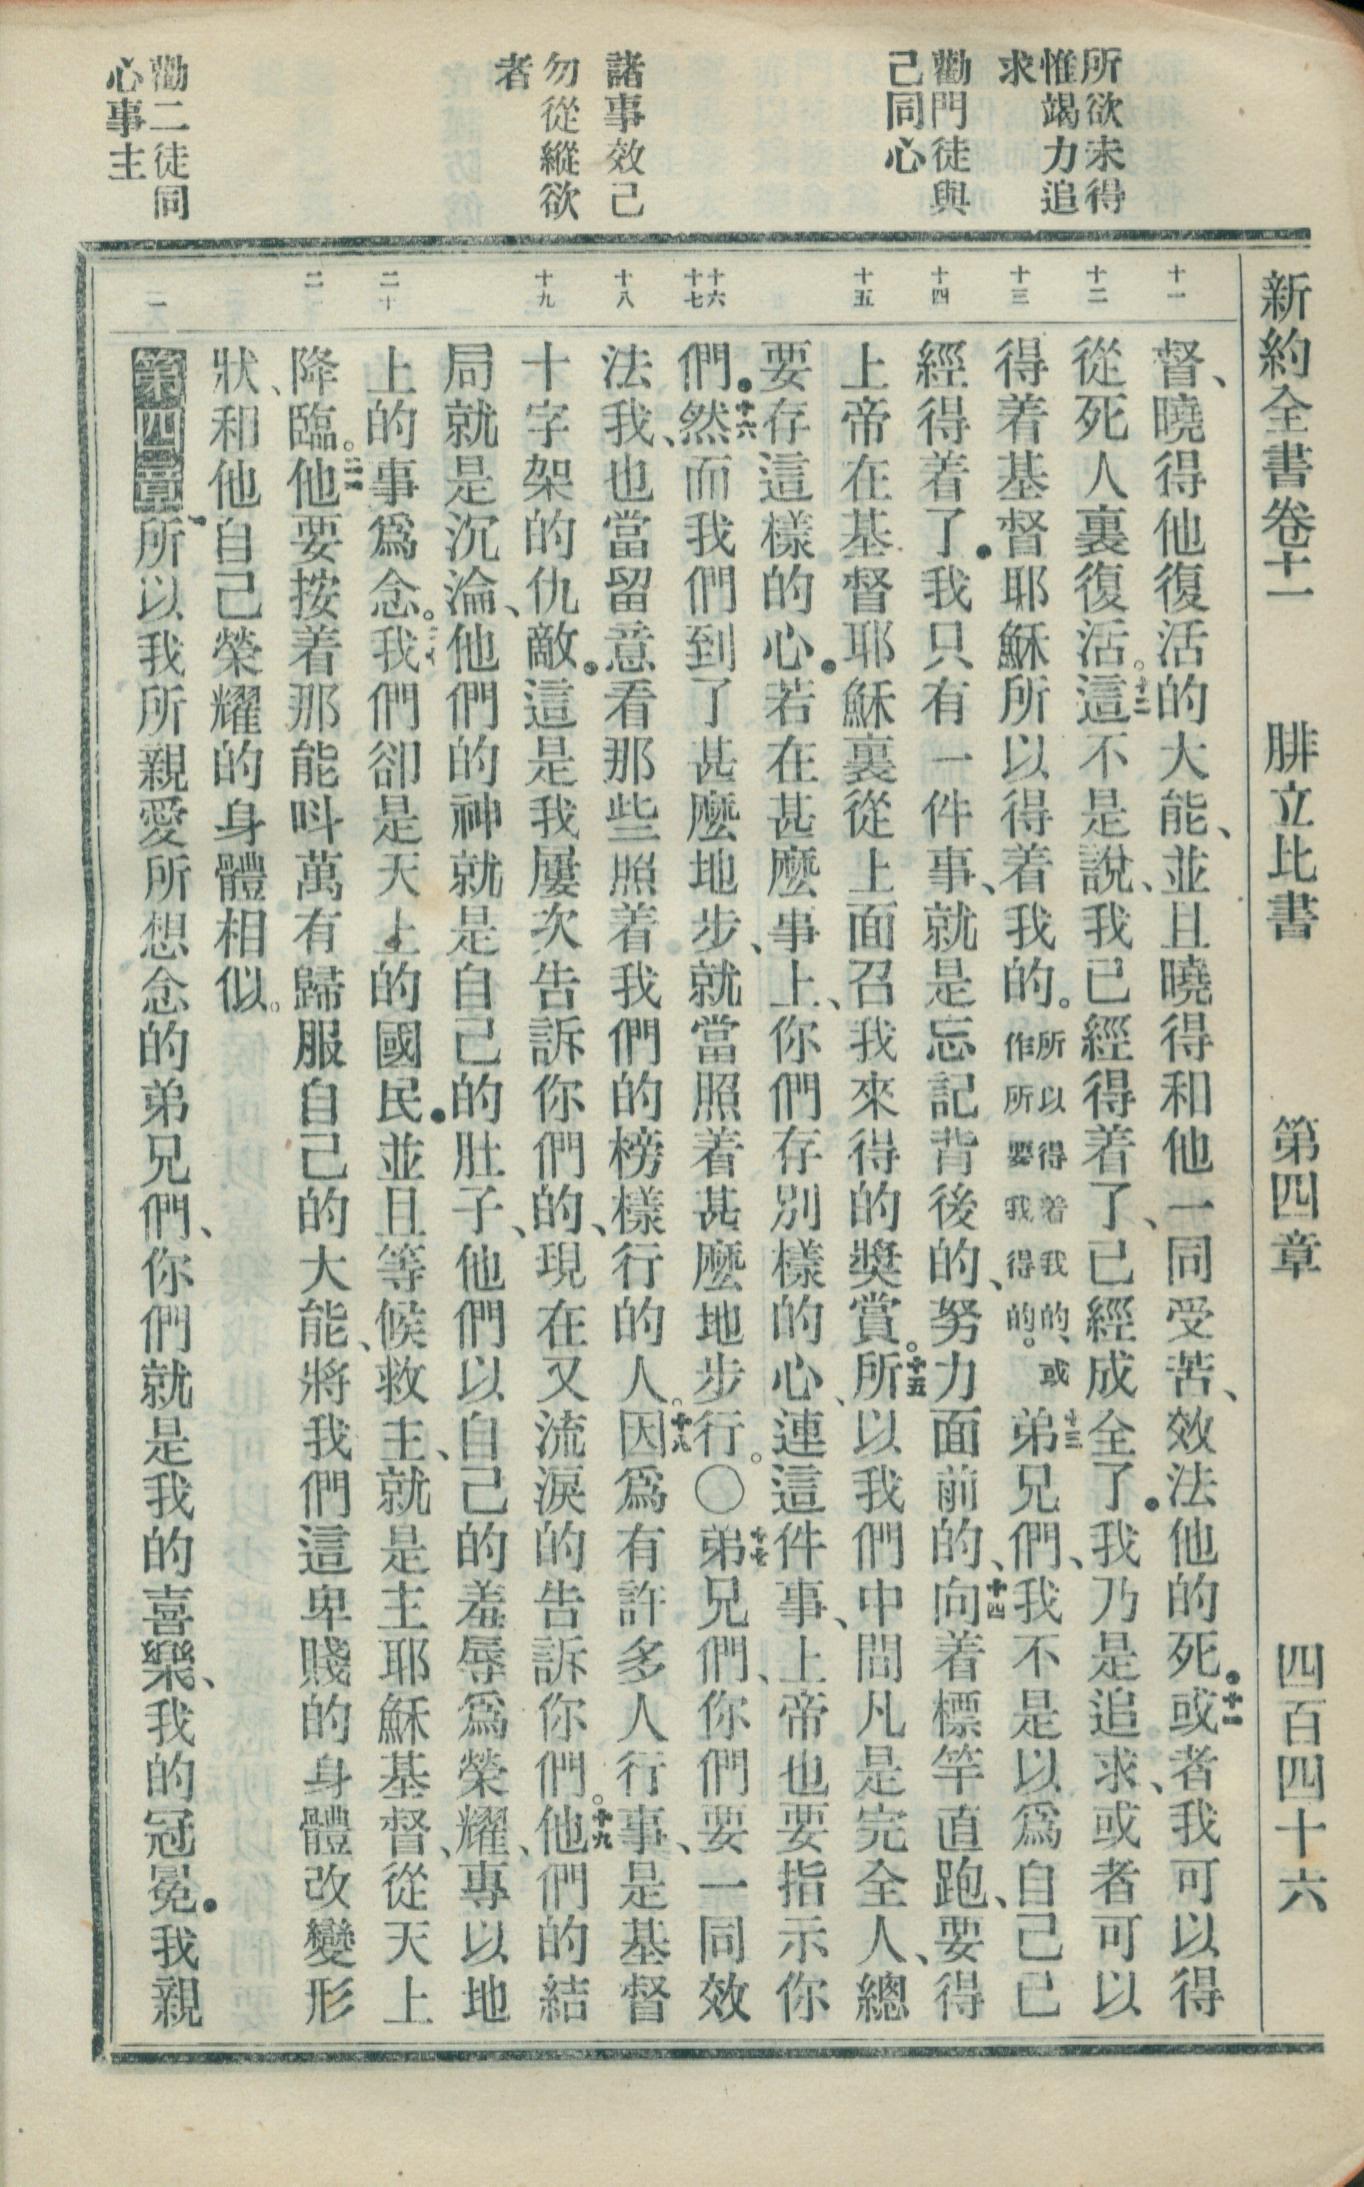 所欲未得
惟竭力追
求
勸門徒與
己同心
諸事效己
勿從縱欲
者
勸二徒同
心事主
新約全書卷十一 腓立比書 第四章 四百四十六
十一
十二
十三
十四
十五
十六
十七
十八
十九
二十
督、曉得他復活的大能、並且曉得和他一同受苦、效法他的死．十一或者我可以得
從死人裏復活。十二這不是說、我已經得着了、已經成全了．我乃是追求、或者可以
得着基督耶穌所以得着我的。所以得着我的、或作所要我得的。十三弟兄們、我不是以爲自己已
經得着了．我只有一件事、就是忘記背後的、努力面前的、十四向着標竿直跑、要得
上帝在基督耶穌裏從上面召我來得的獎賞。十五所以我們中間凡是完全人、總
要存這樣的心．若在甚麼事上、你們存別樣的心、連這件事、上帝也要指示你
們．十六然而我們到了甚麼地步、就當照着甚麼地步行。〇十七弟兄們、你們要一同效
法我、也當留意看那些照着我們的榜樣行的人。十八因爲有許多人行事、是基督
十字架的仇敵．這是我屢次告訴你們的、現在又流淚的告訴你們。十九他們的結
局就是沉淪、他們的神就是自己的肚子、他們以自己的羞辱爲榮耀、專以地
上的事爲念。二十我們卻是天上的國民．並且等候救主、就是主耶穌基督、從天上
降臨。二一他要按着那能叫萬有歸服自己的大能、將我們這卑賤的身體改變形
狀、和他自己榮耀的身體相似。
第四章 所以我所親愛所想念的弟兄們、你們就是我的喜樂、我的冠冕．我親